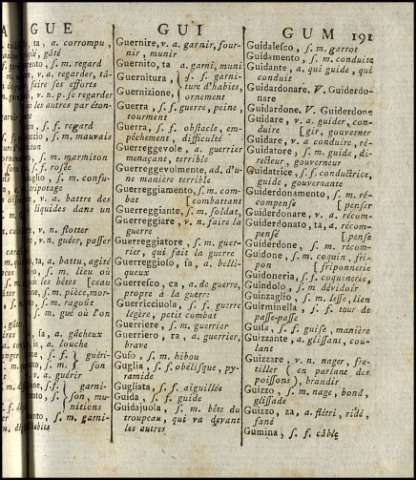 GUE
GUI
GUM 191
ta, a. corrompu,
gâté
m. regard
v. a. regarder, tâ-
faire ses efforts
v. n. p. se regarder
les autres par éton-
s. f. regard
s. m. mauvais
s. m. marmiton
s. f. rosée
s. m. confu-
v. a. battre des
liquides dans un
v. n. flotter
v. n. guéer, passer
ta, a. battu, agité
s. m. lieu où
les bêtes [eau
m. piéce, mor-
s. m. ragoût
m. gué où l'on
ta, a. gâcheux
a. louche
s. f. guéri-
m. son
v. a. guérir
s. f. garni-
son, mu-
nitions
m. garni-
d'habits
Guernire, v. a. garnir, four-
nir, munir
Guernito, ta a. garni, muni
Guernitura, s. f. garni-
ture d'habits,
Guernizione, ornement
Guerra, s. f. guerre, peine,
tourment
Guerra, s. f. obstacle, em-
pêchement, difficulté
Guerreggevole, a. guerrier
menaçant, terrible
Guerreggevolmente, ad. d'u-
ne manière terrible
Guerreggiamento, s. m. com-
bat [combattant
Guerreggiante, s. m. soldat,
Guerreggiare, v. n. faire la
guerre
Guerreggiatore, s. m. guer-
rier, qui fait la guerre
Guerreggioso, sa, a. belli-
queux
Guerresco, ca, a. de guerre,
propre à la guerre
Guerricciuola, s. f. guerre
légère, petit combat
Guerriere, s. m. guerrier
Guerriero, ra, a. guerrier,
brave
Gufo, s. m. hibou
Guglia, s. f. obélisque, py-
ramide
Gugliata, s. f. aiguillée
Guida, s. f. guide
Guidajuola, s. m. bête du
troupeau, qui va devant
les autres
Guidalesco, s. m. garrot
Guidamento, s. m. conduite
Guidante, a. qui guide, qui
conduit
Guidardonare. V. Guiderdo-
nare
Guidardone. V. Guiderdone
Guidare, v. a. guider, con-
duire [gir, gouverner
Guidare, v. a. conduire, ré-
Guidatore, s. m. guide, di-
recteur, gouverneur
Guidatrice, s. f. conductrice,
guide, gouvernante
Guiderdonamento, s. m. ré-
compense [penser
Guiderdonare, v. a. récom-
Guiderdonato, ta, a. récom-
pensé [pense
Guiderdone, s. m. récom-
Guidone, s. m. coquin, fri-
pon [friponnerie
Guidoneria, s. f. coquinerie,
Guindolo, s. m. dévidoir
Guinzaglio, s. m. lesse, lien
Guirminella, s. f. tour de
passe-passe
Guisa, s. f. guise, manière
Guizzante, a. glissant, cou-
lant
Guizzare, v. n. nager, fre-
tiller (en parlant des
poissons), brandir
Guizzo, s. m. nage, bond,
glissade
Guizzo, za, a. flétri, ridé,
fané
Gumina, s. f. câble